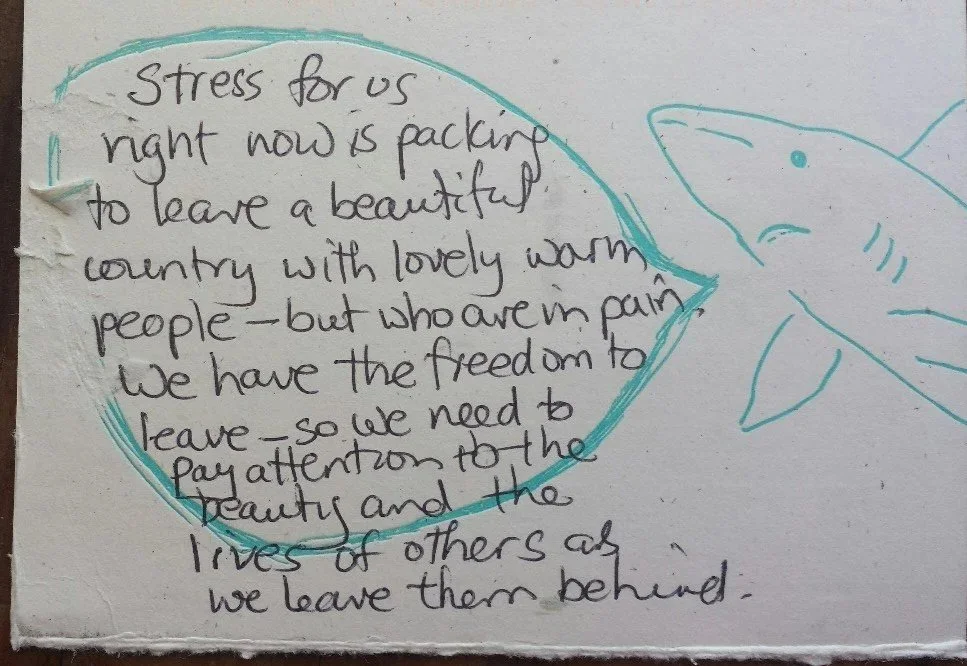 Stress for us
right now is packing
to leave a beautiful
country with lovely warm
people – but who are in pain.
We have the freedom to
leave – so we need to
pay attention to the
beauty and the
lives of others as
we leave them behind.